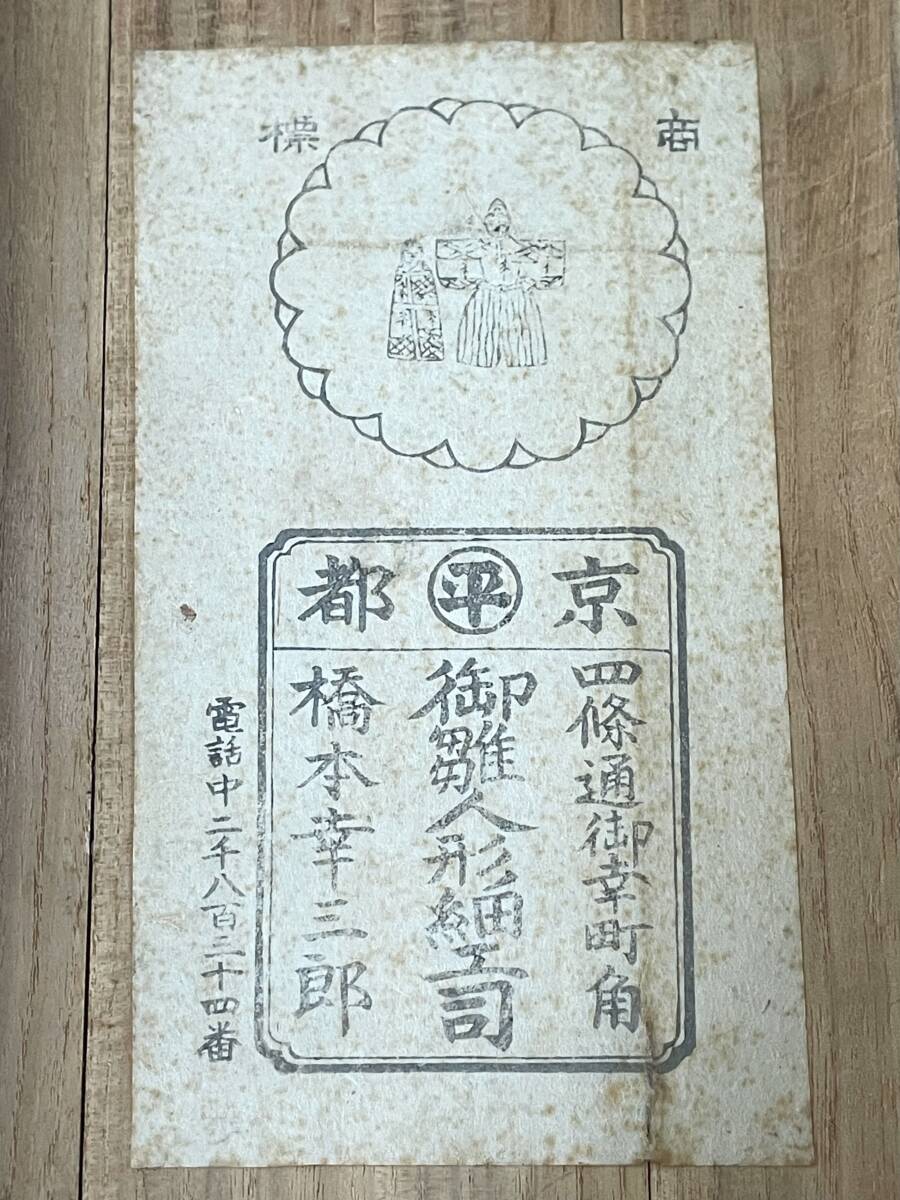 商標
京㊥都
四條通御幸町角
御雛人形細工司
橋本幸三郎
電話中二千八百二十四番